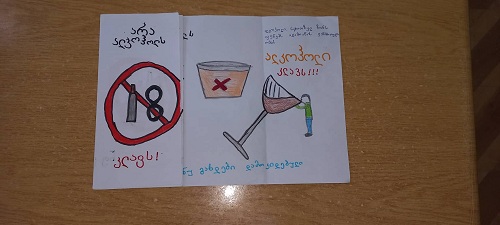 არა
ალკოჰოლს
18
კლავს!
ლს
ალკოჰოლი
კლავს!!!
ნუ გახდები დამოკიდებული